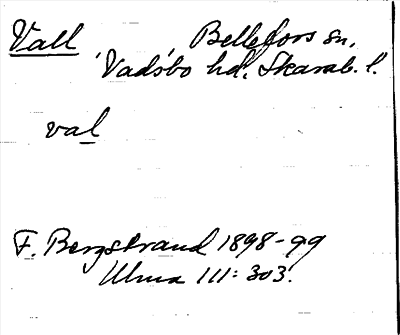 Vall Bellefors sn,
Vadsbo hd. Skarab. l.
val
F. Bergstrand 1898-99
Ulma 111: 303.